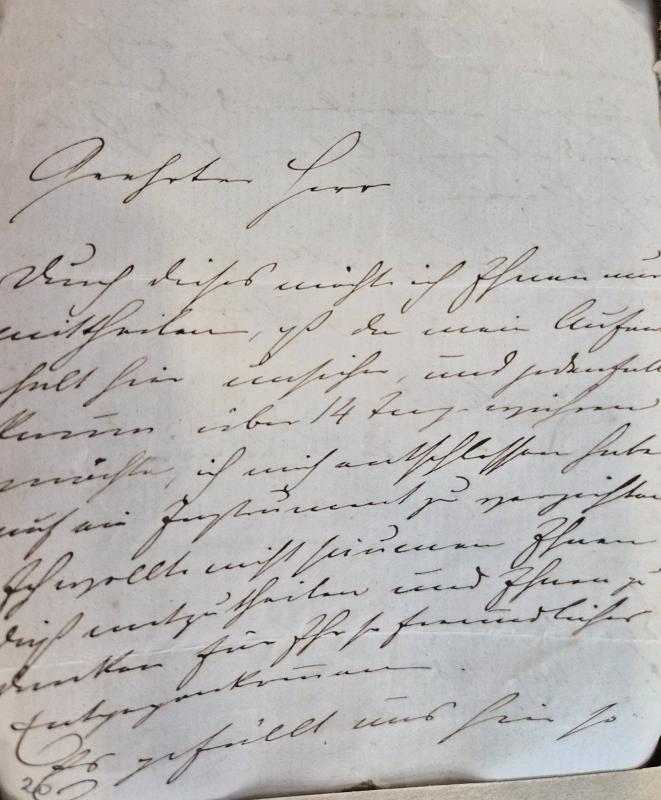 Geehrter Herr
Durch dieses möcht ich Ihnen nur
mittheilen, daß da mein Aufent
halt hier unsicher, und jedenfalls
kaum über 14 Tag währen
möchte, ich mich entschlossen habe
auf ein Instrument zu verzichten
Ich wollte nicht säumen Ihnen
dieß mitzutheilen und Ihnen zu
danken für Ihr so freundliches
Entgegenkommen
Es gefällt uns hier so
26